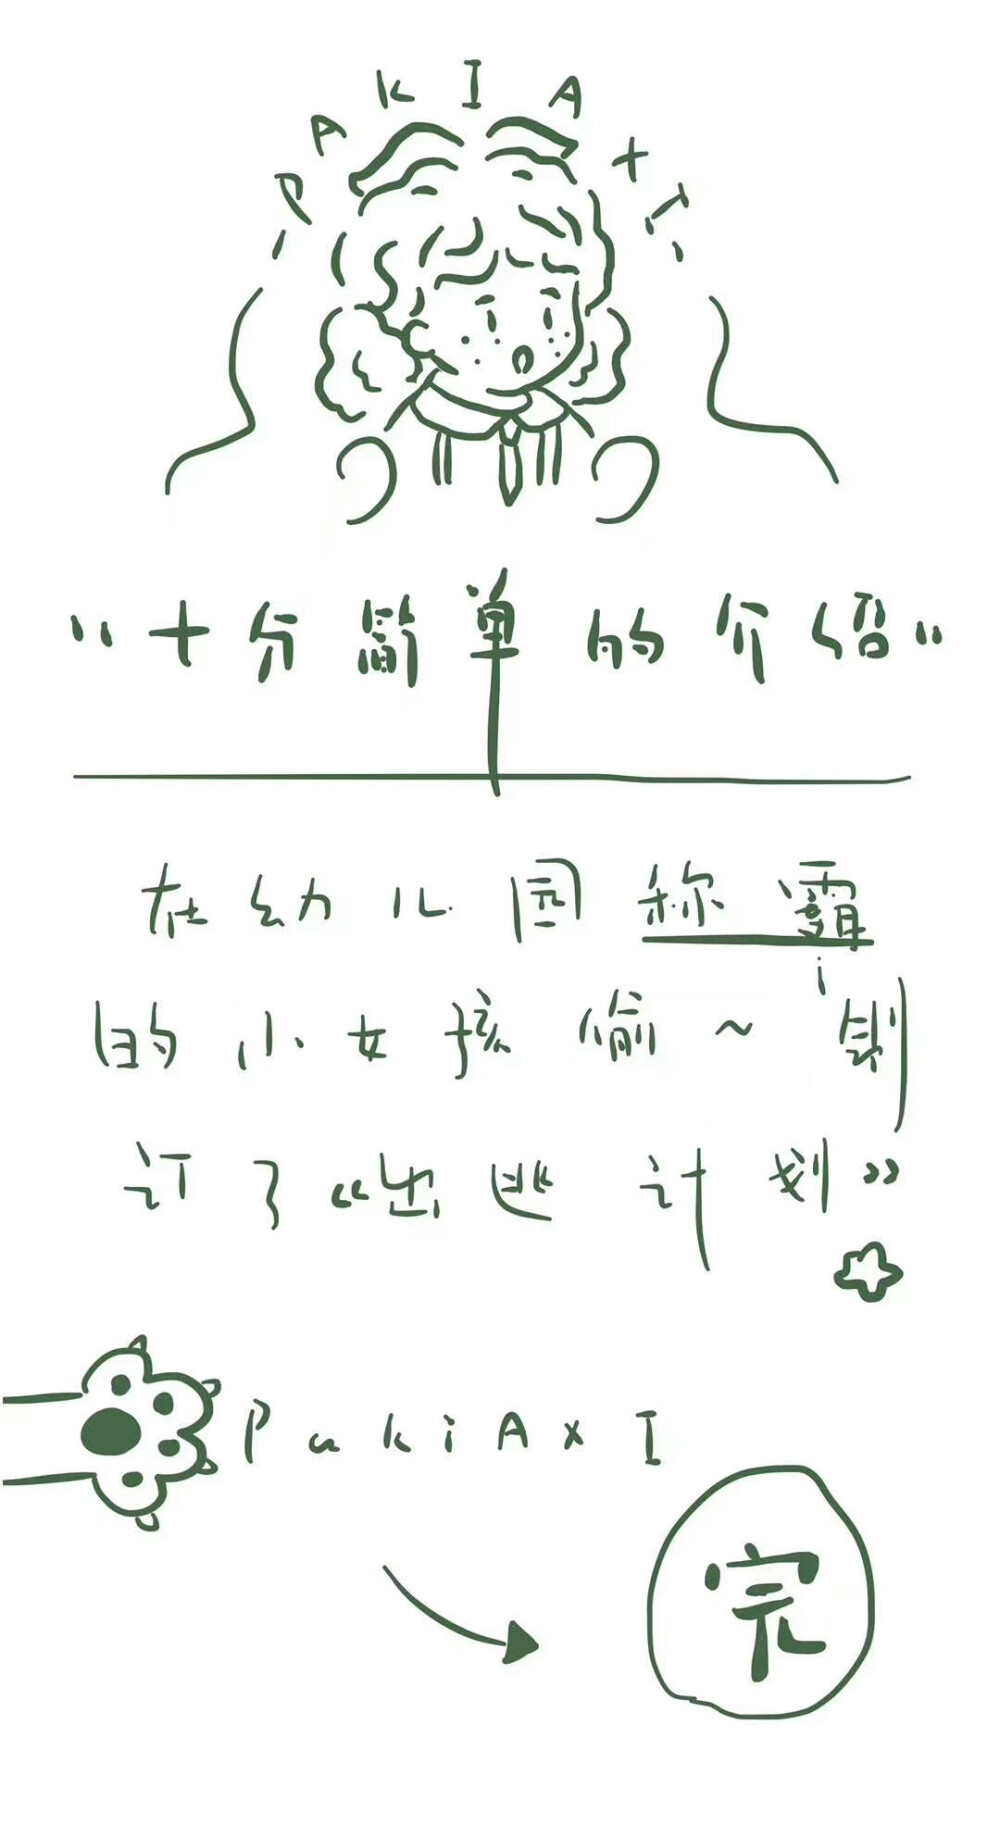 PAKIAXI
"十分简单的介绍"
在幼儿园称霸
的小女孩偷~制
订了《出逃计划》
PakiAxI
完